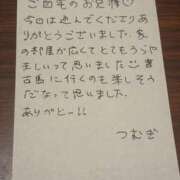 ご自宅のお兄様☺
今日は遊んでくださりあ
りがとうございました。家
の部屋が広くてとてもうらや
ましいって思いました。ご書
古馬に行くのも楽しそう
だなって思いました。
ありがとー!!
つむぎ